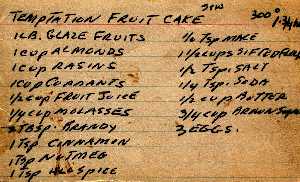 TEMPTATION FRUIT CAKE
300°
1 LB. GLAZE FRUITS
1 CUP ALMONDS
1 CUP RASINS
1 CUP CURRANTS
1/2 CUP FRUIT JUICE
1/4 CUP MOLASSES
TBSP. BRANDY
1 TSP CINNAMON
1 TSP NUTMEG
1 TSP ALLSPICE
1/2 TSP. MACE
1 1/2 CUPS SIFTED
1/2 TSP. SALT
1/4 TSP. SODA
1/2 CUP BUTTER
3/4 CUP BROWN
3 EGGS.